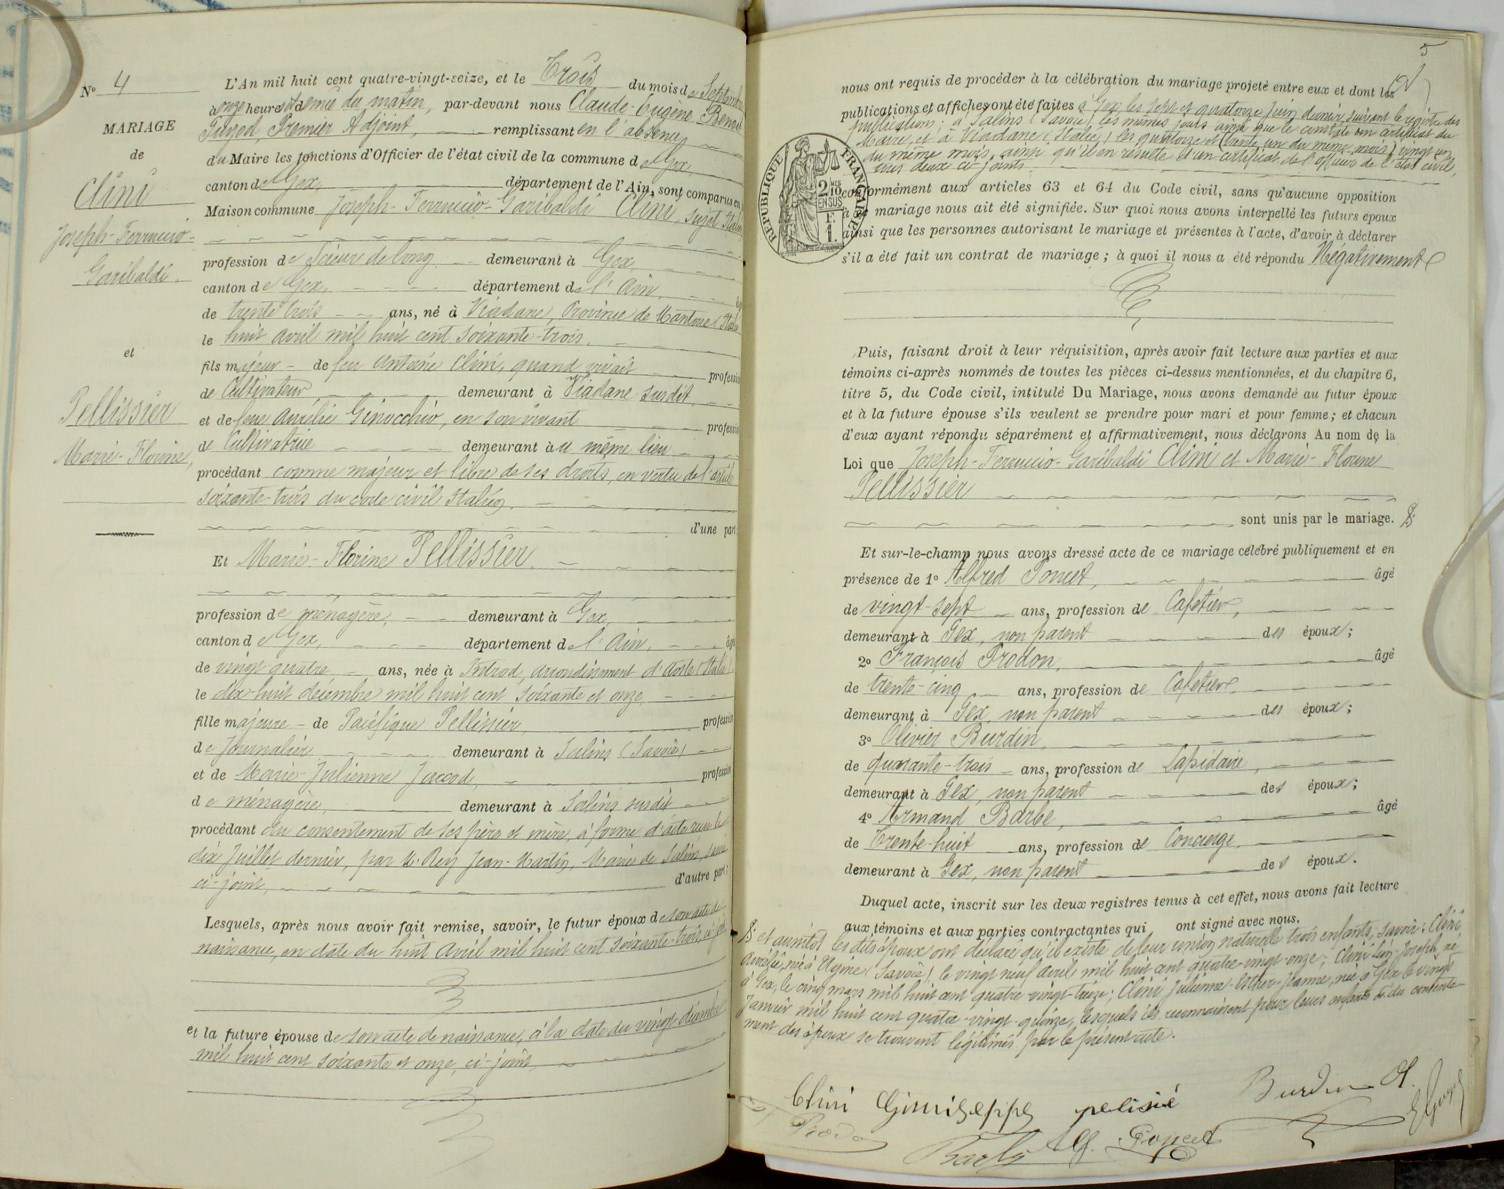 N° 4
MARIAGE
de
Clini
Joseph-Ferrucio-
Garibaldi.
et
Pellissier
Marie-Florine,
L'An mil huit cent quatre-vingt-seize, et le Trois du mois de Septembre
à onze heures du matin, par-devant nous Claude-Eugène
Premier Adjoint, remplissant en l'absence
du Maire les fonctions d'Officier de l'état civil de la commune de Gex,
canton de Gex, département de l'Ain, sont comparus en
Maison commune Joseph-Ferrucio-Garibaldi Clini, sujet Italien
profession de Scieur de long demeurant à Gex,
canton de Gex, département de l'Ain, âgé
de trente trois ans, né à Viadane, Province de Mantoue (Italie
le huit avril mil huit cent soixante-trois.
fils majeur de feu Antoine Clini, quand vivait profession
de Cultivateur demeurant à Viadane susdit,
et de feue Aurélie Ginocchio, en son vivant profession
de Cultivatrice demeurant au même lieu
procédant comme majeur et libre de ses droits, en vertu de l'article
soixante-trois du code civil Italien.
d'une part
Et Marie-Florine Pellissier.
profession de ménagère, demeurant à Gex,
canton de Gex, département de l'Ain, âgée
de vingt quatre ans, née à Introd, arrondissement d'Aoste (Italie)
le dix-huit décembre mil huit cent soixante et onze,
fille majeure de Pacifique Pellissier, profession
de Journalier demeurant à Salins (Savoie)
et de Marie-Julienne Jaccod, profession
de ménagère, demeurant à Salins susdit
procédant du consentement de ses père et mère, à forme d'acte reçu le
dix Juillet dernier, par M. Rey Jean-Martin, Maire de Salins,
ci-joint, d'autre part;
Lesquels, après nous avoir fait remise, savoir, le futur époux de son acte de
naissance, en date du huit avril mil huit cent soixante-trois, ci-joint
et la future épouse de son acte de naissance, à la date du vingt décembre
mil huit cent soixante et onze, ci-joint,
5
nous ont requis de procéder à la célébration du mariage projeté entre eux et dont les
publications et affiches ont été faites à Gex les sept et quatorze Juin dernier, suivant le registre des
publications; à Salins (Savoie) les mêmes jours ainsi que le constate un certificat du
Maire, et à Viadane (Italie) les quatorze et vingt un
du même mois, ainsi qu'il en résulte d'un certificat de l'officier de l'état civil,
tous deux ci-joints.
RÉPUBLIQUE FRANÇAISE
conformément aux articles 63 et 64 du Code civil, sans qu'aucune opposition
à ce mariage nous ait été signifiée. Sur quoi nous avons interpellé les futurs époux
ainsi que les personnes autorisant le mariage et présentes à l'acte, d'avoir à déclarer
s'il a été fait un contrat de mariage; à quoi il nous a été répondu Négativement
Puis, faisant droit à leur réquisition, après avoir fait lecture aux parties et aux
témoins ci-après nommés de toutes les pièces ci-dessus mentionnées, et du chapitre 6,
titre 5, du Code civil, intitulé Du Mariage, nous avons demandé au futur époux
et à la future épouse s'ils veulent se prendre pour mari et pour femme; et chacun
d'eux ayant répondu séparément et affirmativement, nous déclarons Au nom de la
Loi que Joseph-Ferrucio-Garibaldi Clini et Marie-Florine
Pellissier
sont unis par le mariage.
Et sur-le-champ nous avons dressé acte de ce mariage célébré publiquement et en
présence de 1° Alfred Poncet, âgé
de vingt-sept ans, profession de Cafetier,
demeurant à Gex, non parent des époux;
2° François Prodon, âgé
de trente-cinq ans, profession de Cafetier,
demeurant à Gex, non parent des époux;
3° Olivier Burdin,
de quarante-trois ans, profession de Lapidaire,
demeurant à Gex, non parent des époux;
4° Armand Barbe, âgé
de Trente-huit ans, profession de Concierge.
demeurant à Gex, non parent des époux.
Duquel acte, inscrit sur les deux registres tenus à cet effet, nous avons fait lecture
aux témoins et aux parties contractantes qui ont signé avec nous.
et aussitôt les dits époux ont déclaré qu'il existe de leur union naturelle trois enfants, savoir: Clini
Aurélie, née à Ugine (Savoie) le vingt neuf avril mil huit cent quatre-vingt-onze; Clini Joseph, né
à Gex, le cinq mars mil huit cent quatre vingt-treize; Clini Julienne-Esther-Jeanne, née à Gex le vingt
Janvier mil huit cent quatre-vingt-quinze, lesquels ils reconnaissent pour leurs enfants et du consente-
ment des époux se trouvent légitimés par le présent acte.
Clini Giuiseppe pelisié Burdin O.
Barbe Alf. Poncet